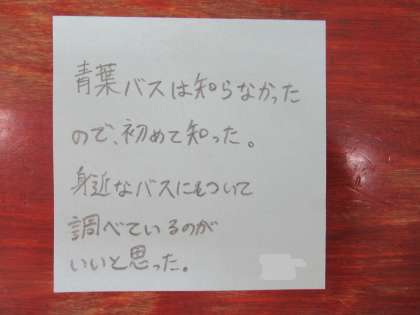 青葉バスは知らなかった
ので、初めて知った。
身近なバスにもついて
調べているのが
いいと思った。